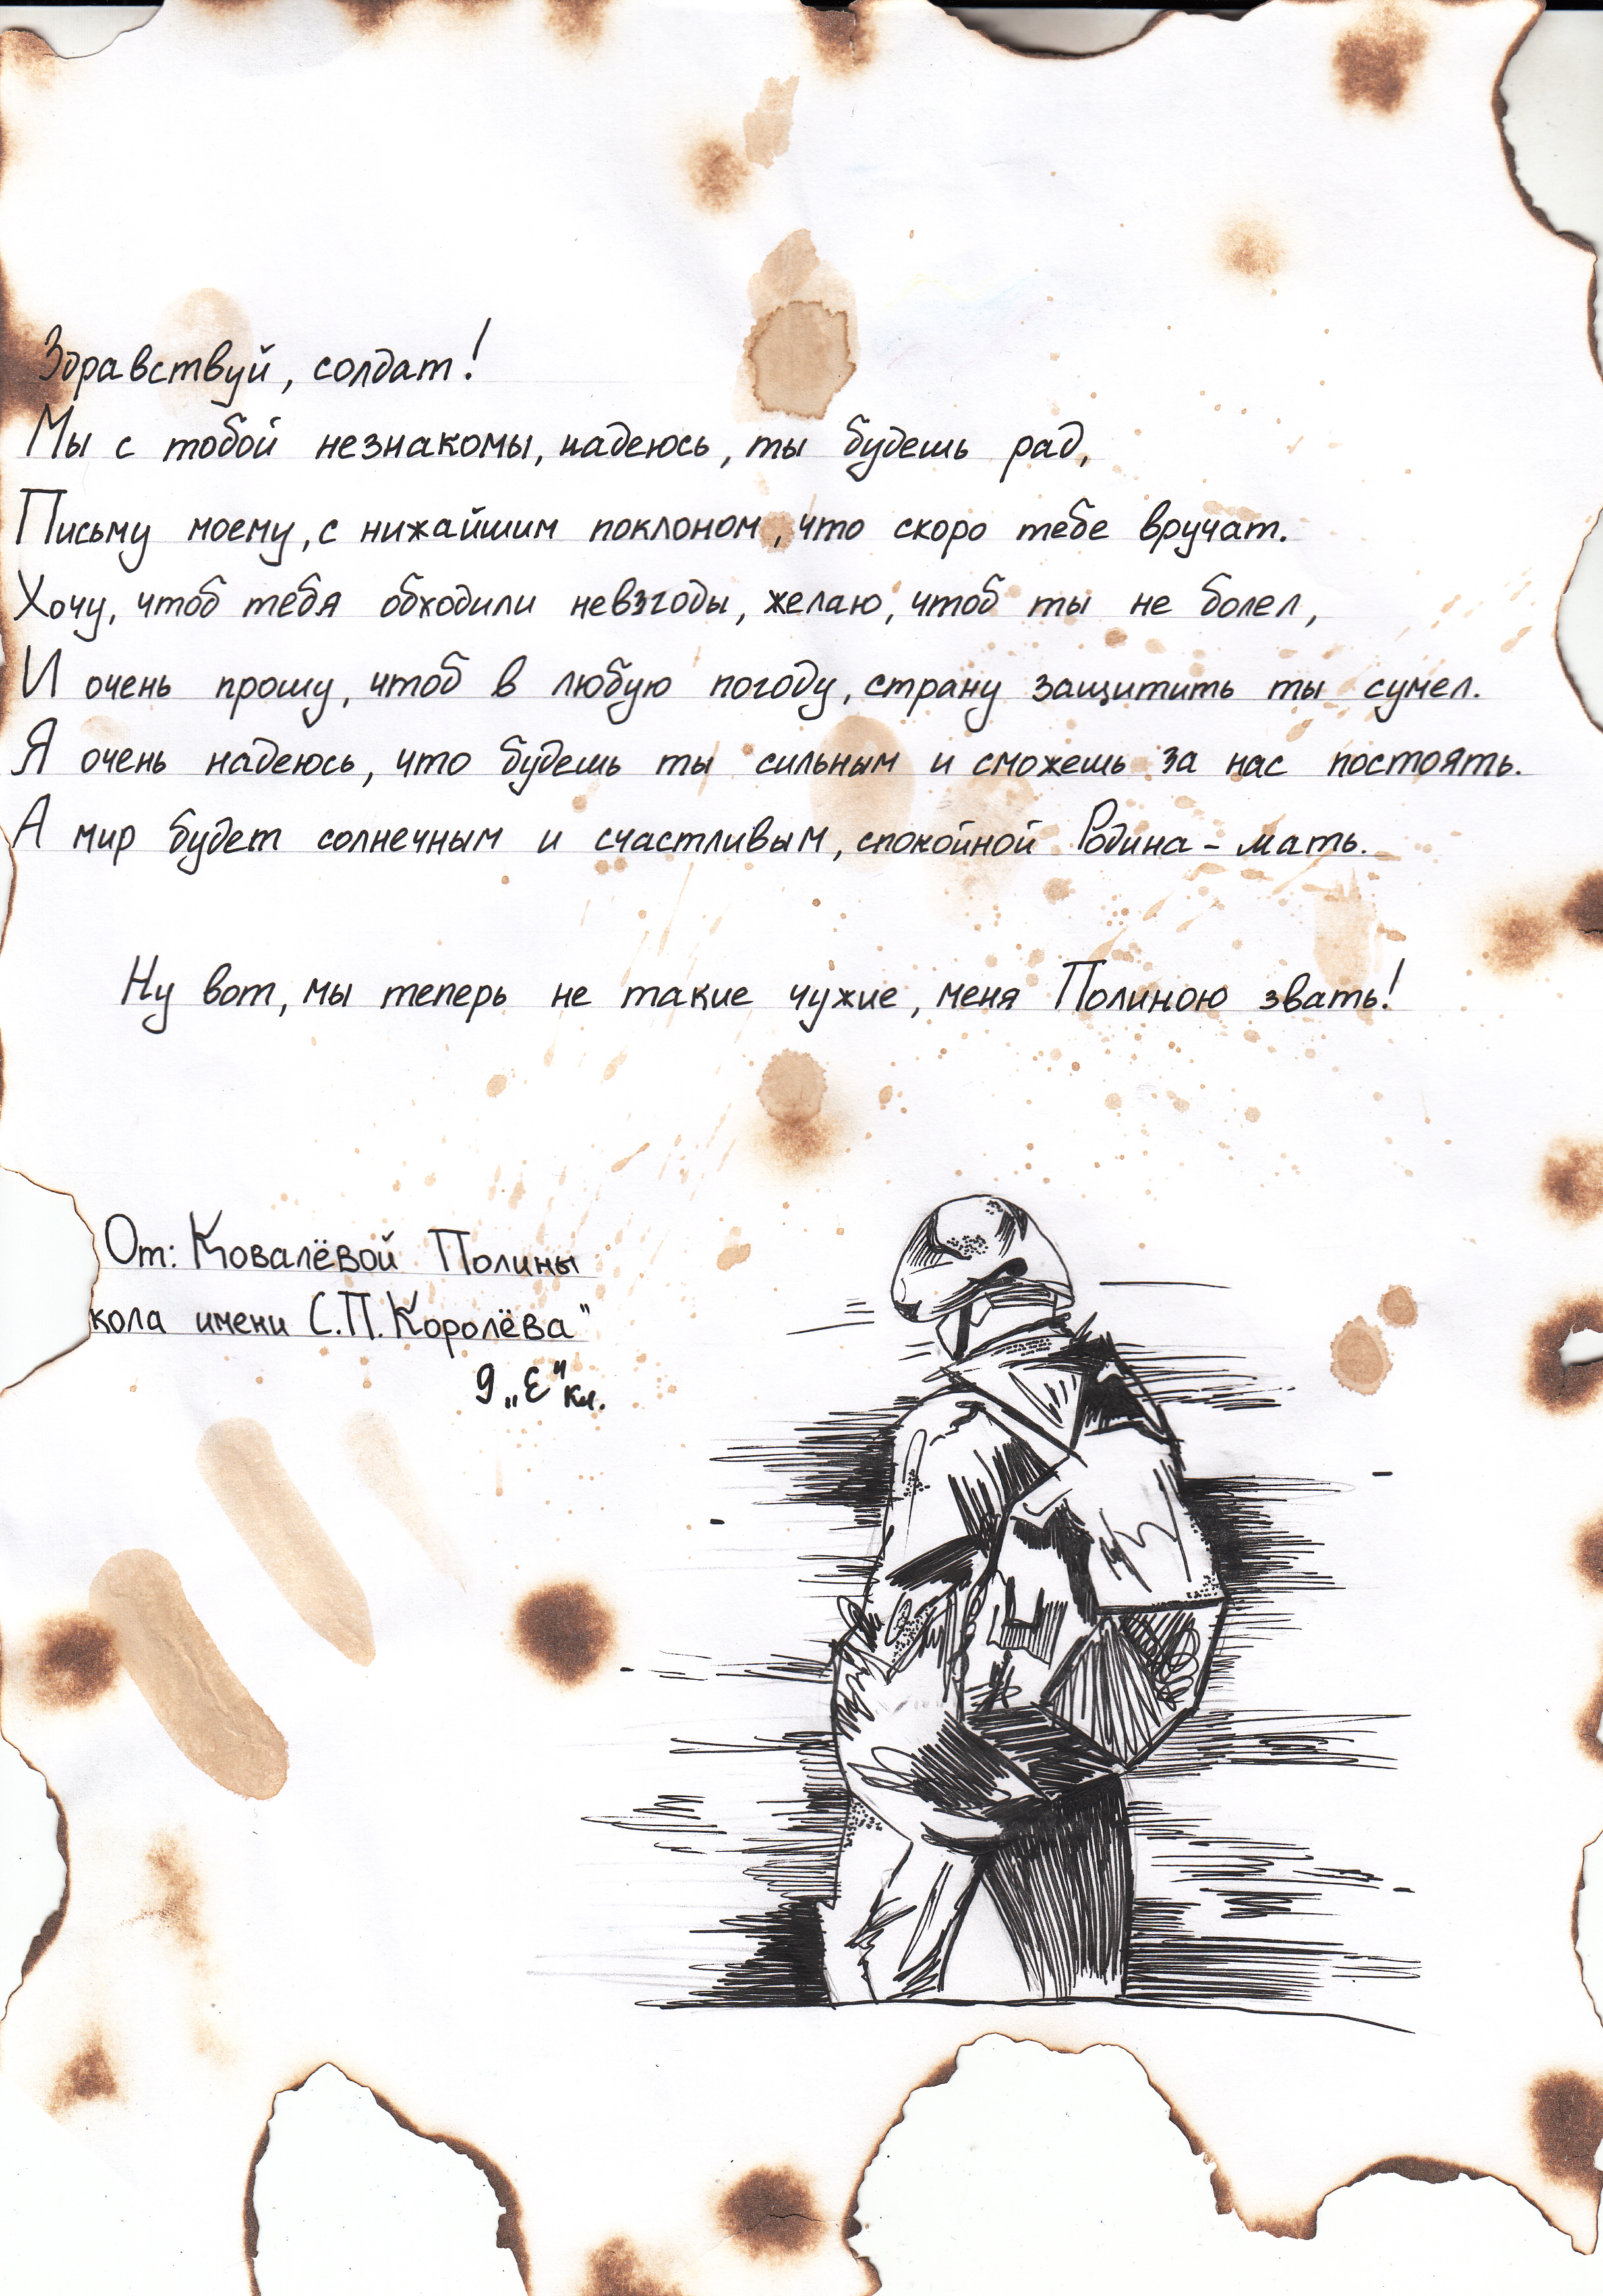 Здравствуй, солдат!
Мы с тобой незнакомы, надеюсь, ты будешь рад,
Письму моему, с нижайшим поклоном, что скоро тебе вручат.
Хочу, чтоб тебя обходили невзгоды, желаю, чтоб ты не болел,
И очень прошу, чтоб в любую погоду, страну защитить ты сумел.
Я очень надеюсь, что будешь ты сильным и сможешь за нас постоять.
А мир будет солнечным и счастливым, спокойной Родина - мать.
Ну вот, мы теперь не такие чужие, меня Полиною звать!
От: Ковалёвой Полины
кола имени С.П.Королёва"
9 „Е" кл.